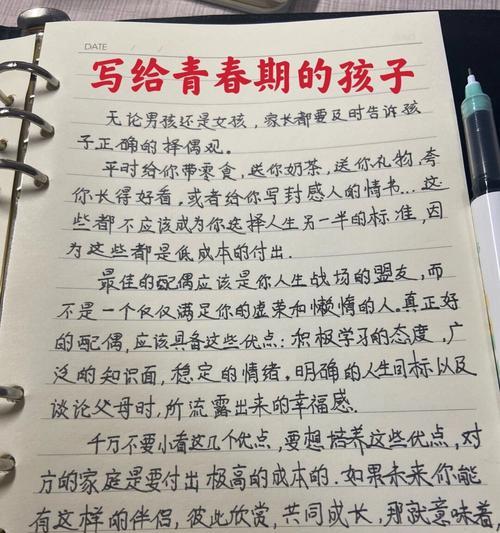 DATE / /
写给青春期的孩子
无论男孩还是女孩，家长都要及时告诉孩
子正确的择偶观。
平时给你带零食，送你奶茶，送你礼物，夸
你长得好看，或者给你写封感人的情书...这
些都不应该成为你选择人生另一半的标准，因
为这些都是低成本的付出.
最佳的配偶应该是你人生战场的盟友，而
不是一个仅仅满足你的虚荣和懒惰的人。真正好
的配偶，应该具备这些优点：积极学习的态度，广
泛的知识面，稳定的情绪，明确的人生目标以及
谈论父母时，所流露出来的幸福感.
千万不要小看这几个优点，要想培养这些优点，对
方的家庭是要付出极高的成本的.如果未来你能
有这样的伴侣，彼此欣赏，共同成长，那就意味着，